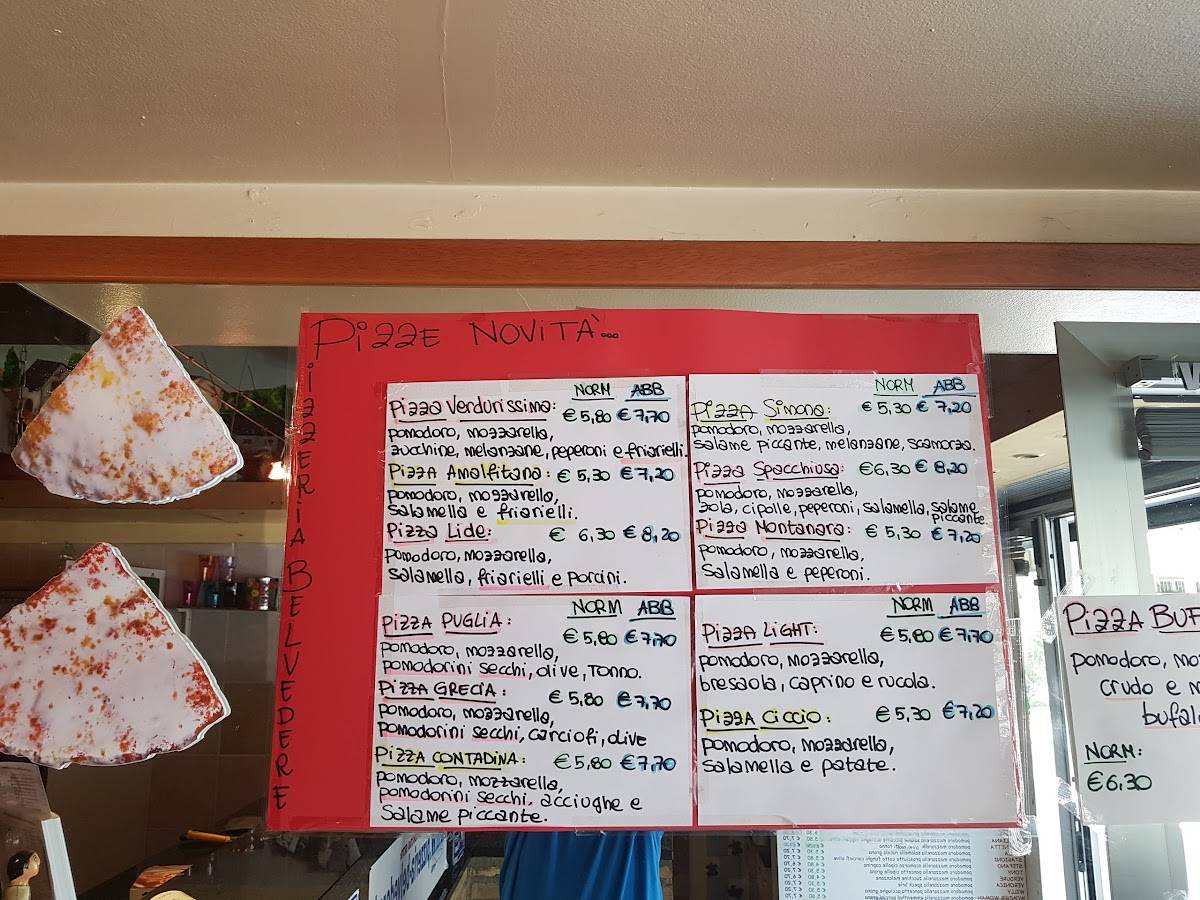 PIZZE NOVITÀ...
PIZZERIA BELVEDERE
NORM ABB
Pizza Verdurissima: € 5,80 € 7,70
pomodoro, mozzarella,
zucchine, melanzane, peperoni e friarielli.
Pizza Amalfitana: € 5,30 € 7,20
pomodoro, mozzarella,
Salamella e friarielli.
Pizza Lide: € 6,30 € 8,20
pomodoro, mozzarella,
Salamella, friarielli e porcini.
NORM ABB
Pizza Simona: € 5,30 € 7,20
pomodoro, mozzarella,
Salame piccante, melanzane, scamorza.
Pizza Spacchiusa: €6,30 € 8,20
pomodoro, mozzarella,
zola, cipolle, peperoni, salamella, salame
piccante
Pizza Montanara: € 5,30 € 7,20
pomodoro, mozzarella,
Salamella e peperoni.
NORM ABB
PIZZA PUGLIA: € 5,80 € 7,70
pomodoro, mozzarella,
pomodorini secchi, olive, tonno.
PIZZA GRECIA: € 5,80 € 7,70
pomodoro, mozzarella,
pomodorini secchi, carciofi, olive
PIZZA CONTADINA: € 5,80 € 7,70
pomodoro, mozzarella,
pomodorini secchi, acciughe e
Salame piccante.
NORM ABB
PIZZA LIGHT: € 5,80 € 7,70
pomodoro, mozzarella,
bresaola, caprino e rucola.
PIZZA CICCIO: € 5,30 € 7,20
pomodoro, mozzarella,
Salamella e patate.
PIZZA BUF
pomodoro, mo
crudo e m
bufal
NORM:
€ 6,30